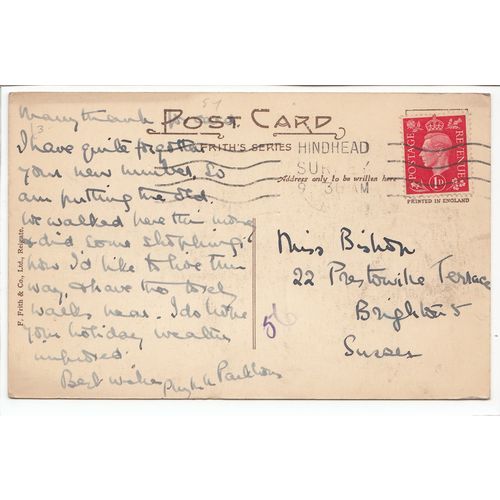 Many thanks
POST CARD
FRITH'S SERIES
HINDHEAD
SUR
9 30 AM
POSTAGE REVENUE
1D
PRINTED IN ENGLAND
Address only to be written here
F. Frith & Co., Ltd., Reigate.
3
I have quite forgotten
your new number, so
am putting the old.
We walked here this morng
& did some shopping;
how I'd like to live this
way, & have the lovely
walks near. I do hope
your holiday weather
improved.
Best wishes
Miss Bishop
22 Prestonville Terrace
Brighton 5
Sussex
56